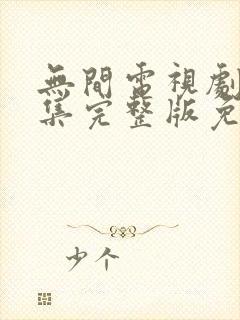 無間電視劇
集完整版免
少个